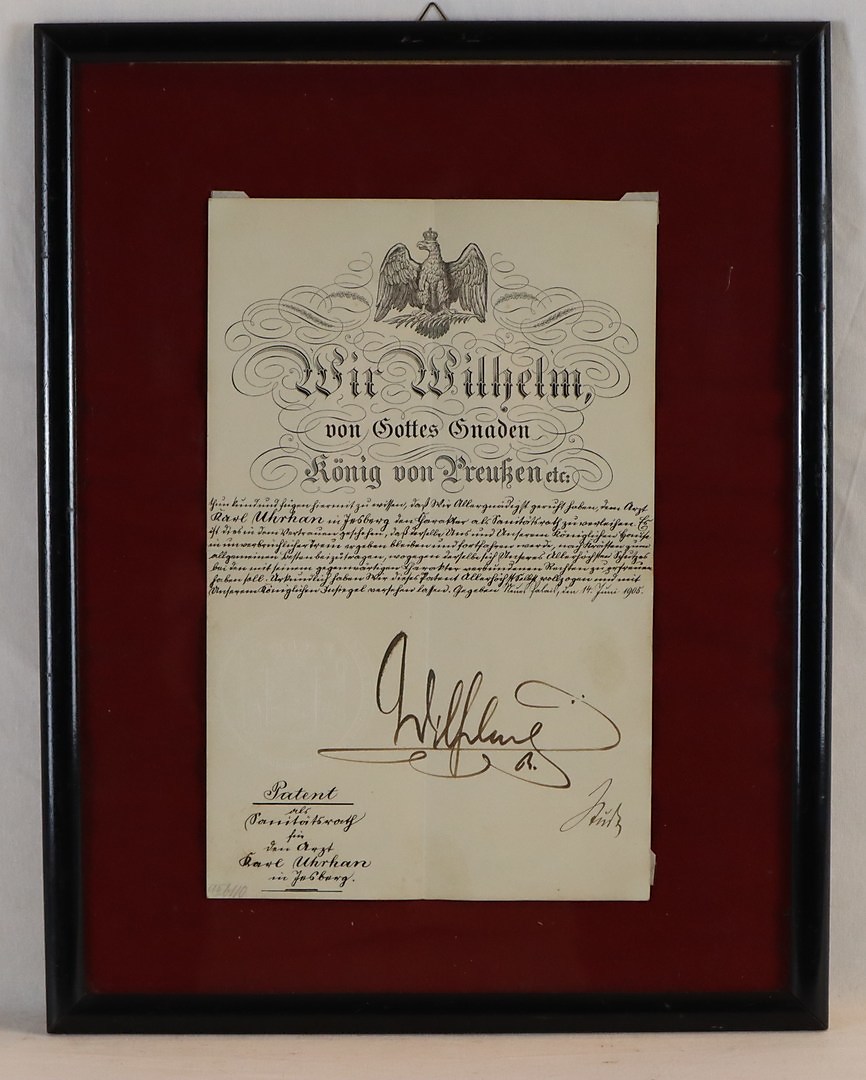 Wir Wilhelm,
von Gottes Gnaden
König von Preußen etc:
thun kund und fügen hiermit zu wissen, daß Wir Allergnädigst geruht haben, dem Arzt
Karl Uhrhan in Jesberg den Charakter als Sanitätsrath zu verleihen. Es
ist dies in dem Vertrauen geschehen, daß derselbe Uns und Unserem Königlichen Hause
in unverbrüchlicher Treue ergeben bleiben und fortfahren werde, nach Kräften zum
allgemeinen Besten beizutragen, wogegen derselbe sich Unseres Allerhöchsten Schutzes
bei den mit seinem gegenwärtigen Charakter verbundenen Rechten zu erfreuen
haben soll. Urkundlich haben Wir dieses Patent Allerhöchstselbst vollzogen und mit
Unserem Königlichen Insiegel versehen lassen. Gegeben Neues Palais, den 14. Juni
Wilhelm
R.
Studt
Patent
als
Sanitätsrath
für
den Arzt
Karl Uhrhan
in Jesberg.